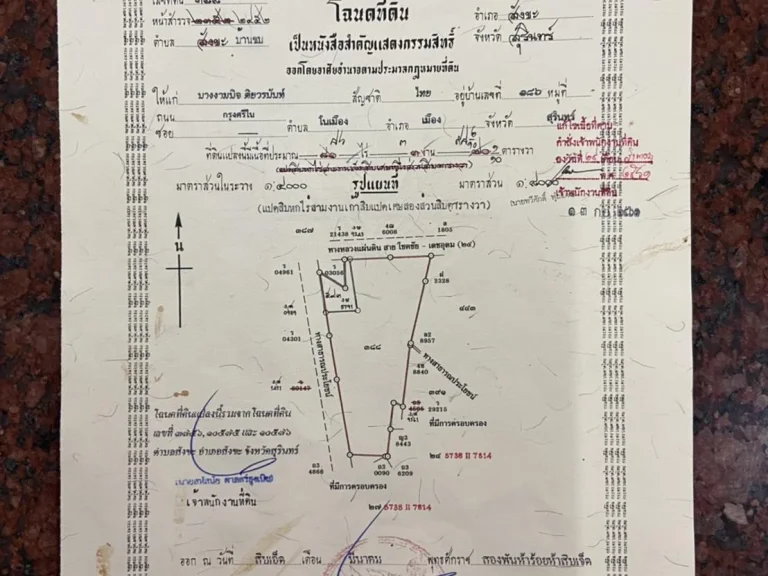 โฉนดที่ดิน
หน้าสำรวจ ๒๙๕๒
อำเภอ สังขะ
ตำบล สังขะ บ้านชบ
เป็นหนังสือสำคัญแสดงกรรมสิทธิ์
จังหวัด สุรินทร์
ออกโดยอาศัยอำนาจตามประมวลกฎหมายที่ดิน
ให้แก่ สัญชาติ ไทย อยู่บ้านเลขที่ ๑๘๖ หมู่ที่
ถนน กรุงศรีใน
ซอย ตำบล ในเมือง อำเภอ เมือง จังหวัด สุรินทร์
แก้ไขเนื้อที่ตาม
คำสั่งเจ้าพนักงานที่ดิน
ที่ดินแปลงนี้มีเนื้อที่ประมาณ ๘๖ ไร่ ๓ งาน ตารางวา
มาตราส่วนในระวาง ๑:๔๐๐๐
รูปแผนที่
มาตราส่วน ๑:๔๐๐๐
เจ้าพนักงานที่ดิน
(แปดสิบหกไร่สามงานเก้าสิบแปดเศษสองส่วนสิบตารางวา)
๓๘๗
21438
6008
1805
ทางหลวงแผ่นดิน สาย โชคชัย - เดชอุดม (๒๔)
น
04961
03056
5328
๕๘๓
๔๔๓
04301
๓๘๘
8957
ทางสาธารณประโยชน์
ทางสาธารณประโยชน์
8840
๓๙๑
4506
29215
ที่มีการครอบครอง
9443
โฉนดที่ดินแปลงนี้รวมจากโฉนดที่ดิน
เลขที่ ๓๓๕๖, ๑๐๕๗๕ และ ๑๐๕๗๖
ตำบลสังขะ อำเภอสังขะ จังหวัดสุรินทร์
๒๔ 5738 II 7814
4868
0090
6209
ที่มีการครอบครอง
เจ้าพนักงานที่ดิน
๒๗ 5738 II 7814
ออก ณ วันที่ สิบเอ็ด เดือน มีนาคม พุทธศักราช สองพันห้าร้อยห้าสิบเจ็ด